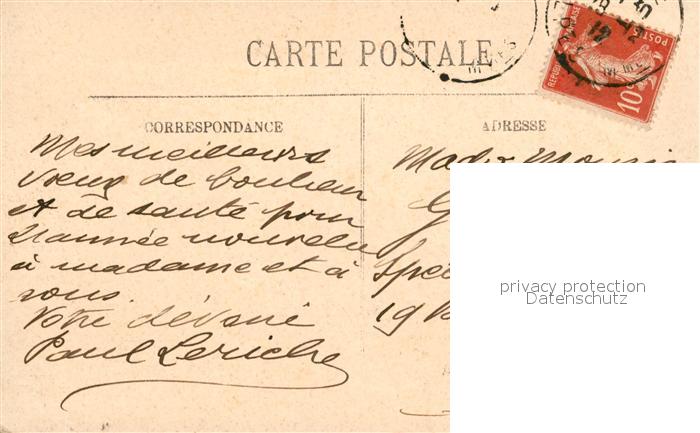 CARTE POSTALE
CORRESPONDANCE
Mes meilleurs
vœux de bonheur
et de santé pour
l'année nouvelle
à madame et à
vous.
Votre dévoué
Paul Leriche
ADRESSE
Mad
Spé
19
10c
POSTE
privacy protection
Datenschutz